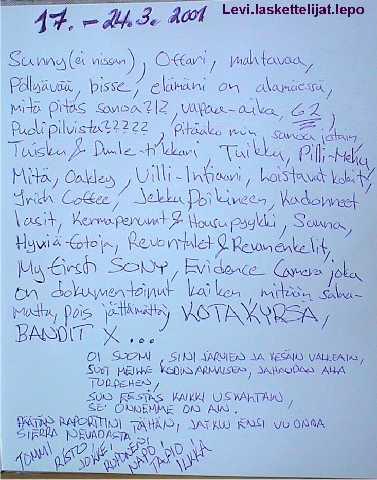 Levi.laskettelijat.lepo
17. – 24.3. 2001
Sunny (ei nissan), Offari, mahtavaa,
Pöllyävää, bisse, elämäni on alamäessä,
mitä pitäs sanoa?!?, vapaa-aika, 62,
Puolipilvistä?????, Pitääkö mun sanoa jotain,
Tuisku & Dumle-tikkari Tuikku, Pilli-Mehu
Mitä, Oakley, Villi-Intiaani, hoistavat
Irish Coffee, Jekku Poikineen, Kadonneet
lasit, Kermaperunat & Housupyykki, Sauna,
Hyviä-Fotoja, Revontulet & Revonenkelit,
My first SONY, Evidence Camera joka
on dokumentoinut kaiken mitään salaa-
matta, pois jättämättä, KOTAKYRSÄ,
BANDIT X ...
OI SUOMI, SINI JÄRVIEN JA KESÄIN VALLEAIN,
SUOT MEILLE KODIN ARMAISEN, JAHAUDAN ALLA
TURPEHEN,
SUN
KAIKKI USKAHTAIN,
SE' ONNEMME ON AIN.
PÄÄTÄN RAPORTTINI TÄHÄN, JATKUU ENSI VUONNA
SIERRA NEVADASTA.
TOMMI RISTO JOKKE NAPO TAPIO ILKKA